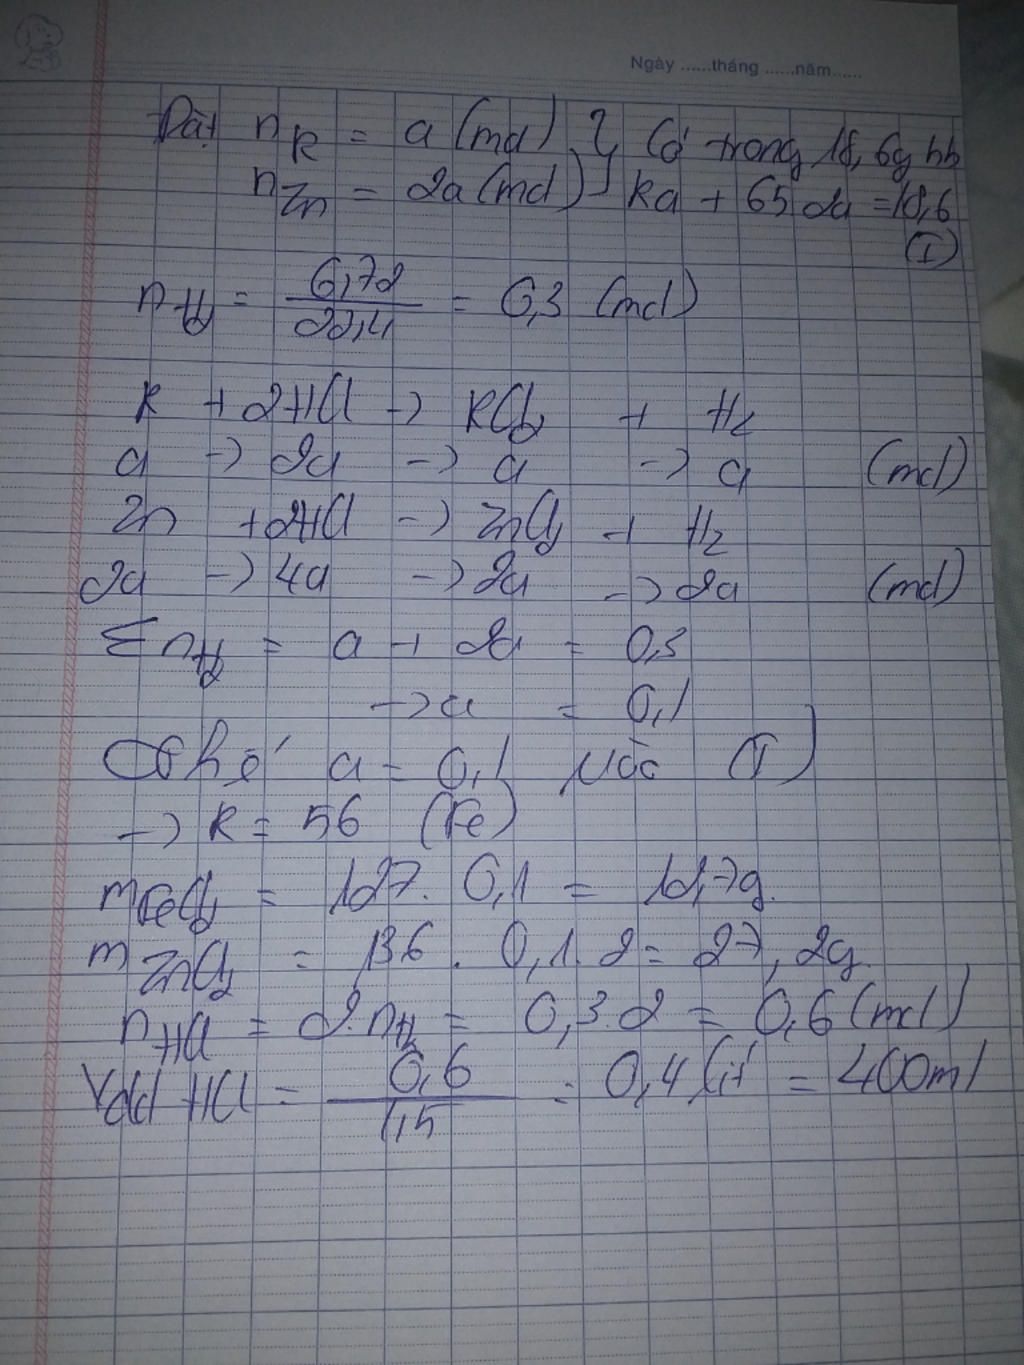 Ngày ......tháng ......năm......
Đặt nR = a (mol) } Có trong 18,6g hh
nZn = 2a (mol) Ra + 65 2a = 18,6
(I)
nH2 = 6,72/22,4 = 0,3 (mol)
R + 2HCl -> RCl2 + H2
a -> 2a -> a -> a (mol)
Zn + 2HCl -> ZnCl2 + H2
2a -> 4a -> 2a -> 2a (mol)
Σ nH2 = a + 2a = 0,3
-> a = 0,1
thế a = 0,1 vào (I)
-> R = 56 (Fe)
mFeCl2 = 127. 0,1 = 12,7g.
mZnCl2 = 136 . 0,1. 2 = 27,2g.
nHCl = 2.nH2 = 0,3.2 = 0,6 (mol)
Vdd HCl = 0,6/1,5 = 0,4 lít = 400ml